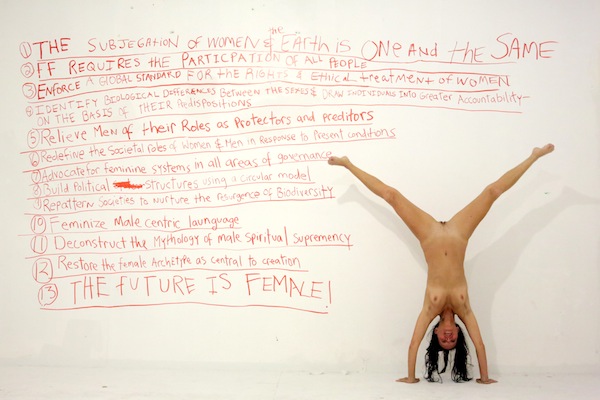 ① THE SUBJEGATION OF WOMEN & the EARTH iS ONE AND the SAME
② FF REQUIRES the PARTICPATION OF ALL PEOPLE
③ ENFORCE A GLOBAL STANDARD FOR the RIGHTS & ETHICAL tREATMENT OF WOMEN
④ IDENTIFY BIOLOGICAL DIFFERENCES BETWEEN the SEXES & DRAW INDIVIDUALS INTO GREATER ACCOUNTABILITY-
ON the BASIS OF tHEIR PREDISPOSITIONS
⑤ Relieve MEN of their Roles as Protectors and preditors
⑥ Redefine the Societal roles of Women & Men in Response to Present conditions
⑦ Advocate for feminine systems in all areas of governance
⑧ Build Political Structures using a circular model
⑨ Repattern Societies to Nurture the Resurgence of Biodiversity
⑩ Feminize Male centric launguage
⑪ Deconstruct the Mythology of male spiritual supremency
⑫ Restore the female Archetype as central to creation
⑬ THE FUTURE IS FEMALE!